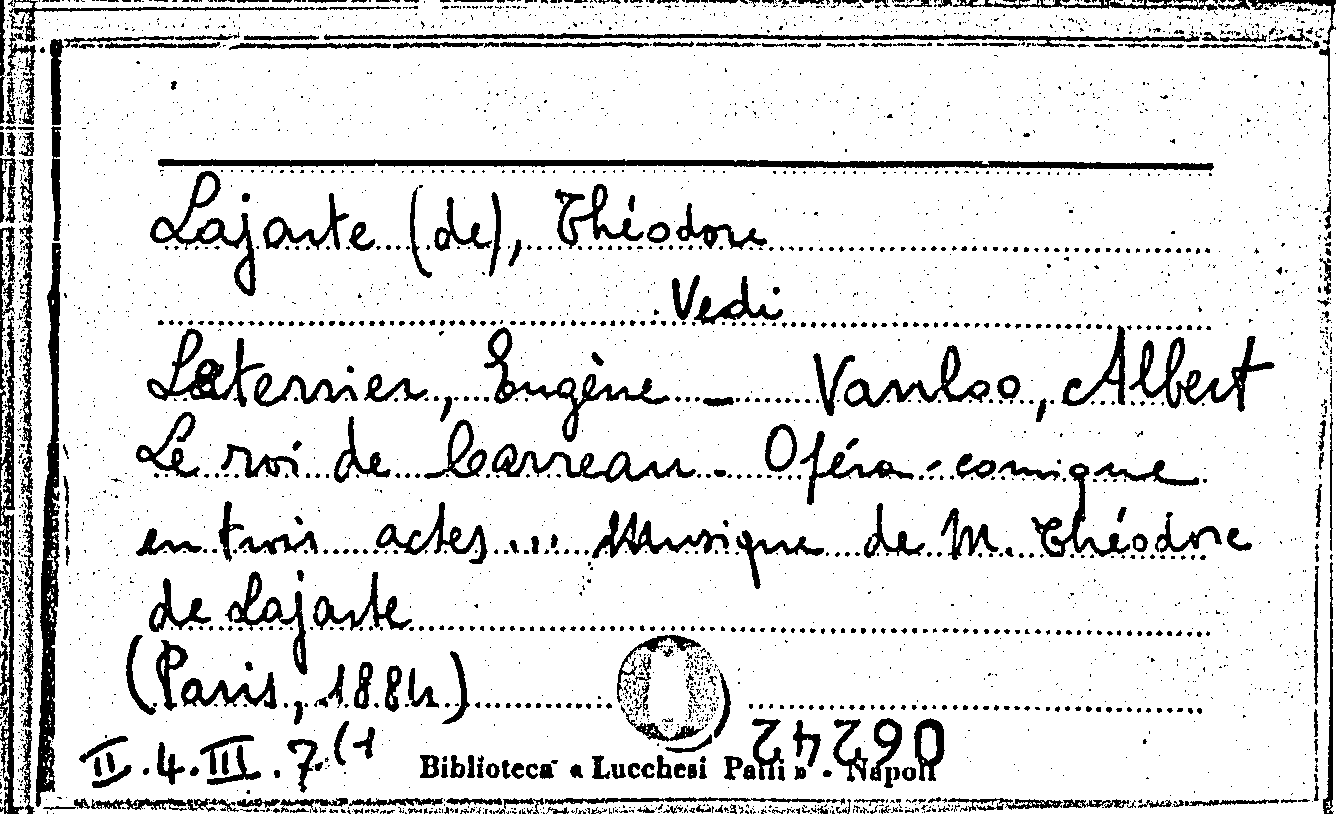 Lajarte (de), Théodore
Vedi
Leterrier, Eugène – Vanloo, Albert
Le roi de Carreau - Opéra-comique
en trois actes... Musique de M. Théodore
de Lajarte
(Paris, 1884)
06242
II.4.III.7.(1
Biblioteca « Lucchesi Palli » - Napoli